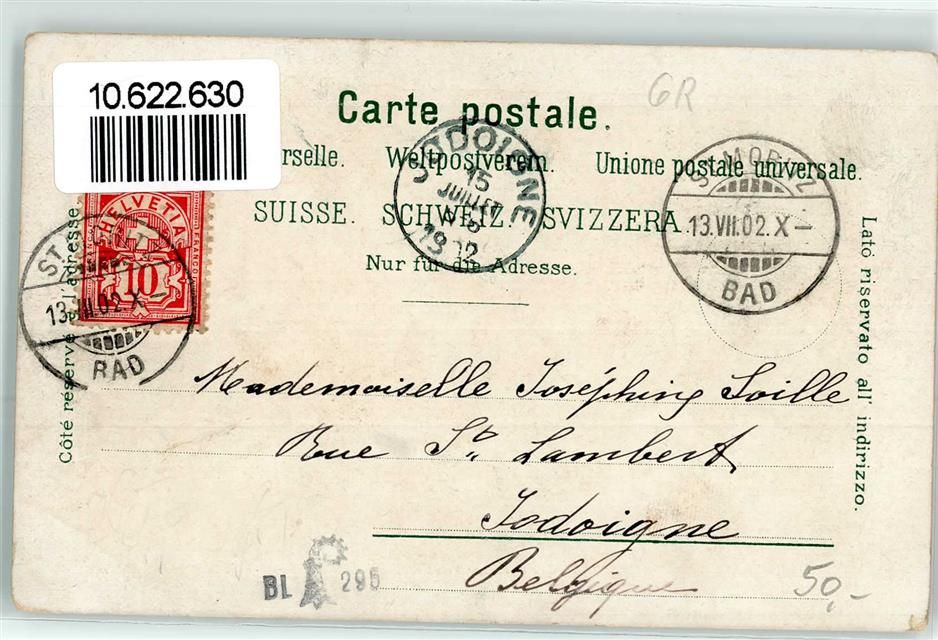 10.622.630
GR
Carte postale.
rselle. Weltpostverein Unione postale universale.
SUISSE. SCHWEIZ. SVIZZERA.
Nur für die Adresse.
Côté réservé à l'adresse
Lato riservato all' indirizzo.
HELVETIA
FRANCO
10
ST.
13.VII.02.X
BAD
JODOIGNE
15
JUILLET
1902
ST. MORITZ
13.VII.02.X–
BAD
Mademoiselle Joséphine Soille
Rue St. Lambert
Jodoigne
Belgique
BL 295
50,-